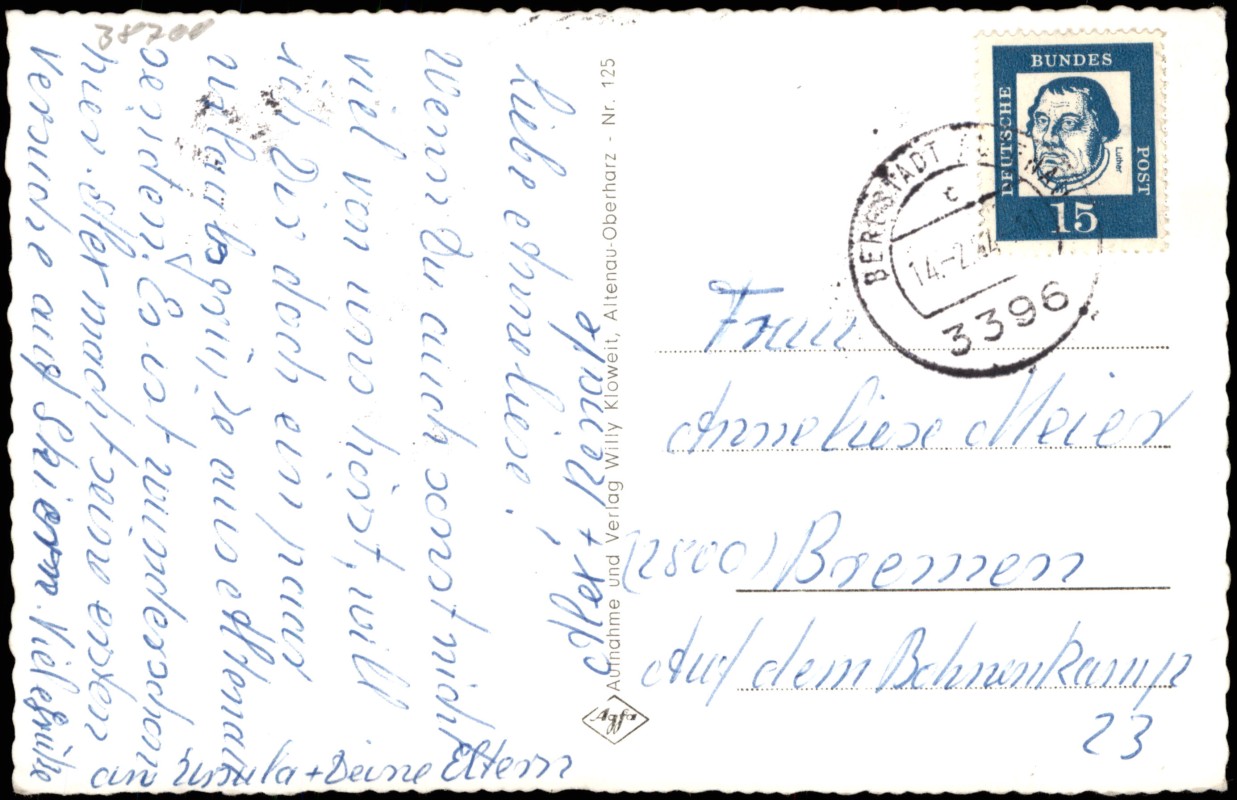 38700
Liebe Anneliese!
Wenn Du auch sonst nicht
viel von uns hörst, will
ich Dir doch ein paar
urlaubsgrüße aus Altenau
senden. Es ist wunderschön
hier. Alex macht seine ersten
Versuche auf Skiern. Viele Grüße
an Ursula + Deine Eltern
Alex + Renate
Aufnahme und Verlag Willy Kloweit, Altenau-Oberharz - Nr. 125
Agfa
DEUTSCHE
BUNDES
POST
Luther
15
BERGSTADT
c
14.-2.64
3396
Frau
Anneliese Meier
(2800) Bremen
Auf dem Bohnenkamp
23